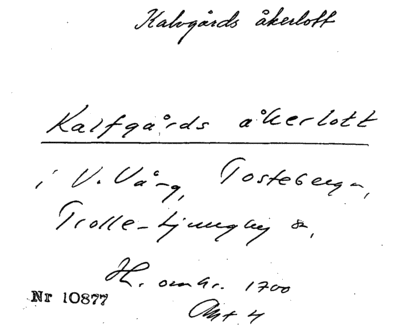 Kalvgårds åkerlott
Kalfgårds åkerlott
i V. Vång, Tosteberga,
Trolle-Ljungby s:n,
H. omkr. 1700
Nr 10877
Akt 4